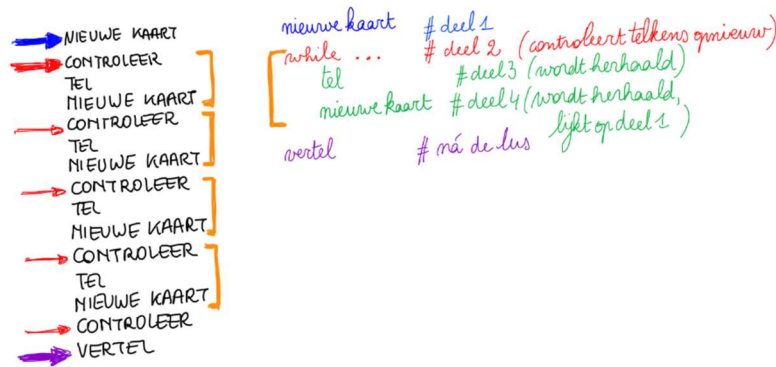 NIEUWE KAART
CONTROLEER
TEL
NIEUWE KAART
CONTROLEER
TEL
NIEUWE KAART
CONTROLEER
TEL
NIEUWE KAART
CONTROLEER
TEL
NIEUWE KAART
CONTROLEER
VERTEL
nieuwe kaart # deel 1
while ... # deel 2 (controleert telkens opnieuw)
tel # deel 3 (wordt herhaald)
nieuwe kaart # deel 4 (wordt herhaald,
lijkt op deel 1)
vertel # ná de lus